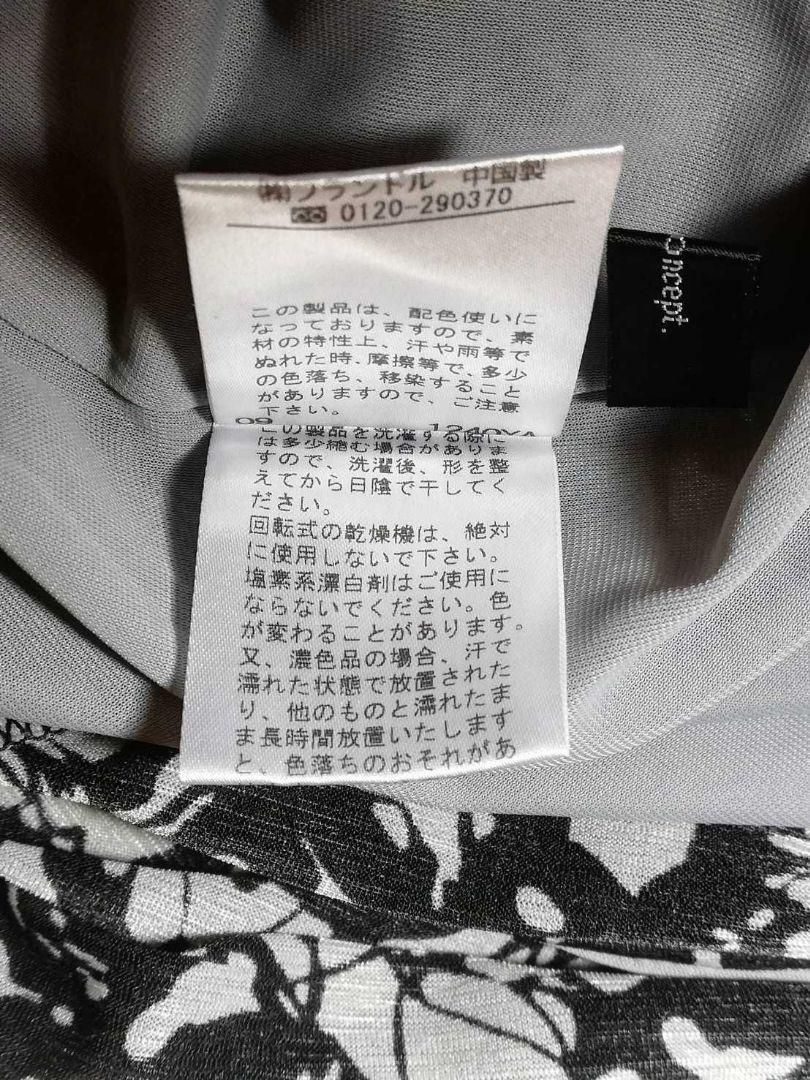 ㈱フランドル 中国製
0120-290370
この製品は、配色使いに
なっておりますので、素
材の特性上、汗や雨等で
ぬれた時、摩擦等で、多少
の色落ち、移染すること
がありますので、ご注意
下さい。
09
この製品を洗濯する際に
は多少縮む場合がありま
すので、洗濯後、形を整
えてから日陰で干してく
ださい。
回転式の乾燥機は、絶対
に使用しないで下さい。
塩素系漂白剤はご使用に
ならないでください。色
が変わることがあります。
又、濃色品の場合、汗で
濡れた状態で放置された
り、他のものと濡れたま
ま長時間放置いたします
と、色落ちのおそれがあ
concept.